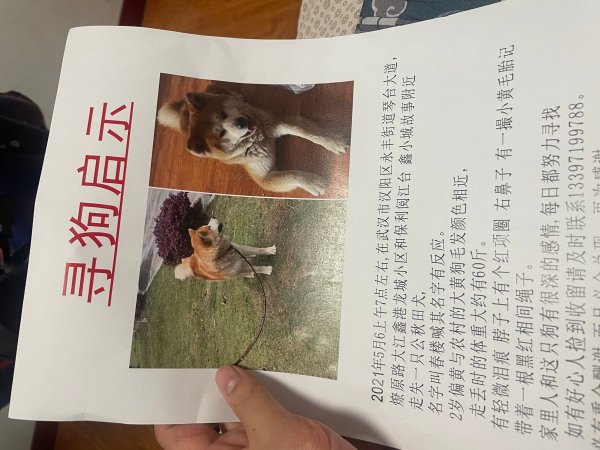 寻狗启示
2021年5月6上午7点左右,在武汉市汉阳区永丰街道琴台大道,
燎原路大江鑫港龙城小区和保利阅江台 鑫小城故事附近
走失一只公秋田犬,
名字叫春楼喊其名字有反应。
2岁偏黄与农村的大黄狗毛发颜色相近,
走丢时的体重大约有60斤。
有轻微泪痕 脖子上有个红项圈 右鼻子 有一撮小黄毛胎记
带着一根黑红相间绳子。
家里人和这只狗有很深的感情,每日都努力寻找
如有好心人捡到收留请及时联系13397199788。